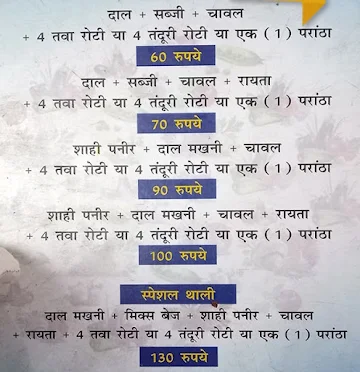 दाल + सब्जी + चावल
+ 4 तवा रोटी या 4 तंदूरी रोटी या एक (1) परांठा
60 रुपये
दाल + सब्जी + चावल + रायता
+ 4 तवा रोटी या 4 तंदूरी रोटी या एक (1) परांठा
70 रुपये
शाही पनीर + दाल मखनी + चावल
+ 4 तवा रोटी या 4 तंदूरी रोटी या एक (1) परांठा
90 रुपये
शाही पनीर + दाल मखनी + चावल + रायता
+ 4 तवा रोटी या 4 तंदूरी रोटी या एक (1) परांठा
100 रुपये
स्पेशल थाली
दाल मखनी + मिक्स बेज + शाही पनीर + चावल
+ रायता + 4 तवा रोटी या 4 तंदूरी रोटी या एक (1) परांठा
130 रुपये